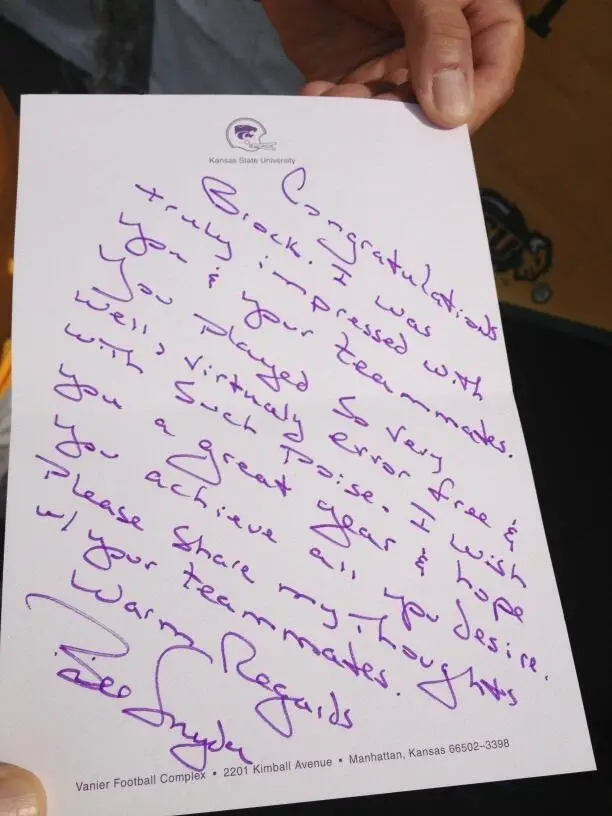 Kansas State University
Congratulations
Brock. I was
truly impressed with
you & your teammates.
You played so very
well, virtualy error free &
with such poise. I wish
you a great year & hope
you achieve all you desire.
Please share my thoughts
w/ your teammates.
Warm Regards
Bill Snyder
Vanier Football Complex • 2201 Kimball Avenue • Manhattan, Kansas 66502–3398